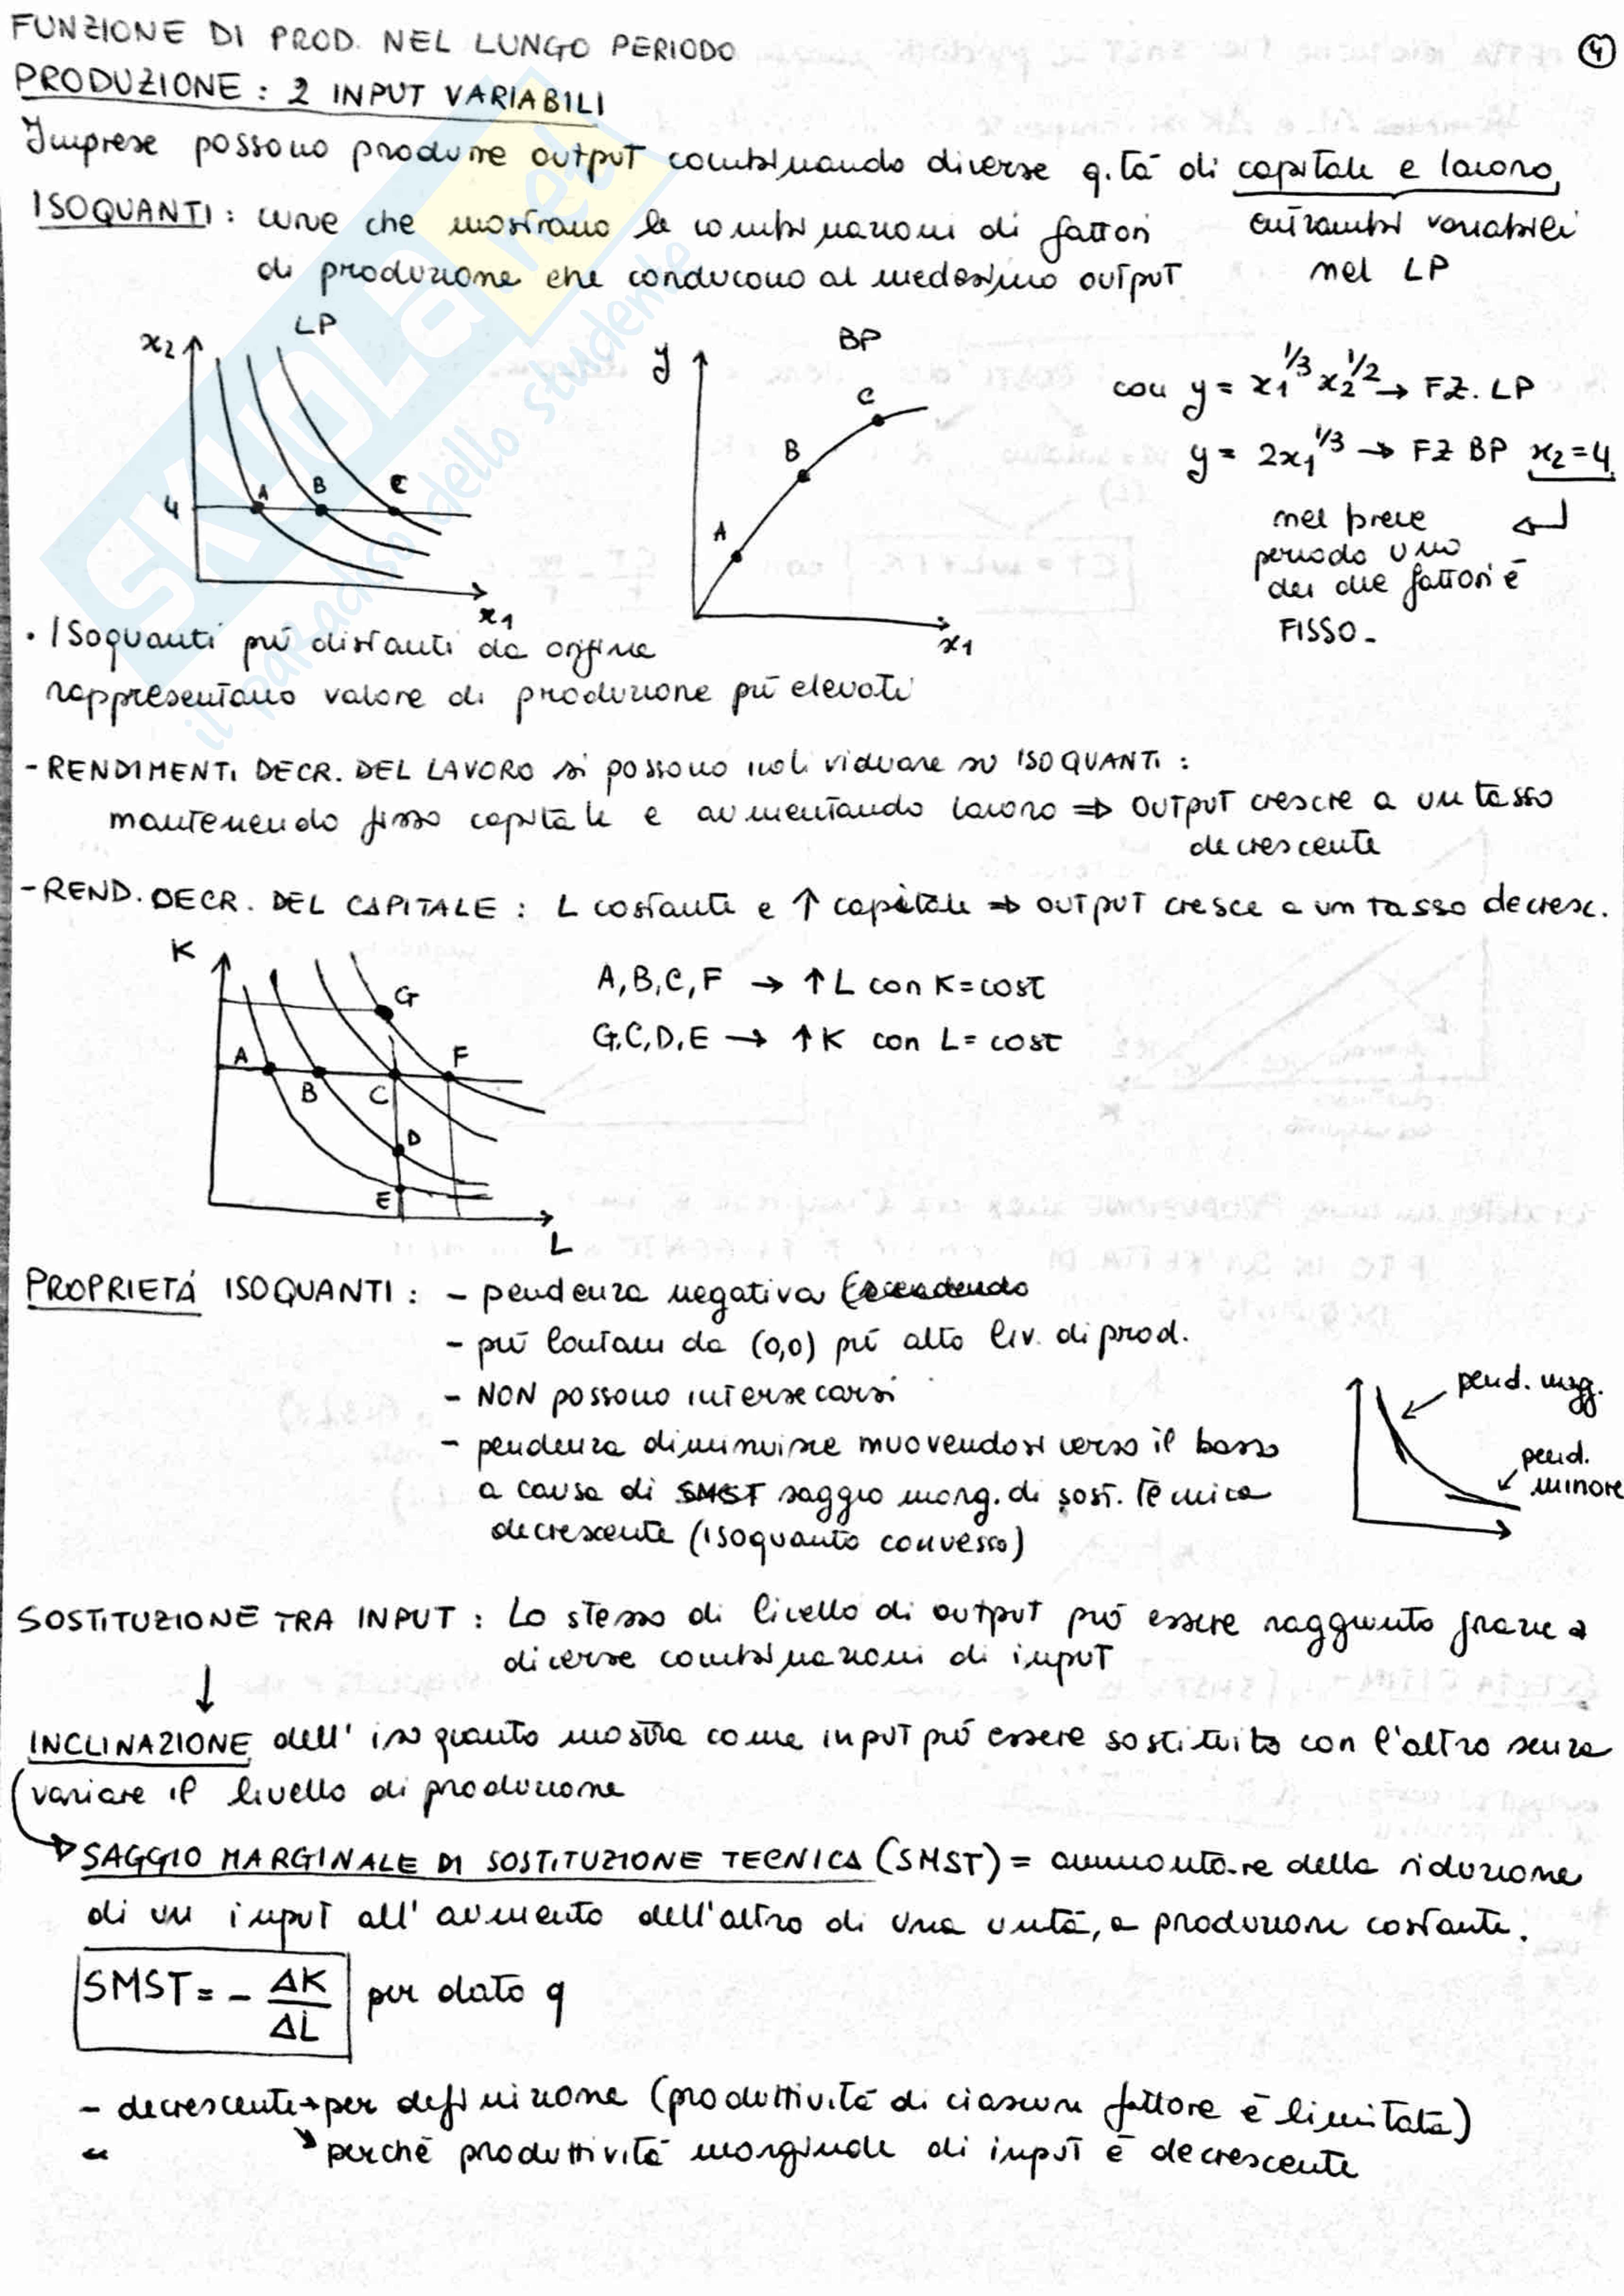 FUNZIONE DI PROD. NEL LUNGO PERIODO
4
PRODUZIONE : 2 INPUT VARIABILI
Imprese possono produrre output combinando diverse q.tà di capitale e lavoro,
entrambi variabili
nel LP
ISOQUANTI : curve che mostrano le combinazioni di fattori
di produzione che conducono al medesimo output
LP
x2
4
A B C
x1
BP
y
A
B
C
x1
con y = x1^1/3 x2^1/2 → FZ. LP
y = 2x1^1/3 → FZ BP x2=4
nel breve
periodo uno
dei due fattori è
FISSO.
• Isoquanti più distanti da origine
rappresentano valore di produzione più elevati
- RENDIMENTI DECR. DEL LAVORO si possono individuare su ISOQUANTI :
mantenendo fisso capitale e aumentando lavoro ⇒ output crescre a un tasso
decrescente
- REND. DECR. DEL CAPITALE : L costante e ↑ capitale ⇒ output cresce a un tasso decresc.
K
G
A
B
C
F
D
E
L
A,B,C,F → ↑ L con K=cost
G,C,D,E → ↑ K con L= cost
PROPRIETÁ ISOQUANTI : - pendenza negativa
- più lontani da (0,0) più alto liv. di prod.
- NON possono intersecarsi
- pendenza diminuisce muovendosi verso il basso
a causa di SMST saggio marg. di sost. tecnica
decrescente (isoquanto convesso)
pend. magg.
pend.
minore
SOSTITUZIONE TRA INPUT : Lo stesso di livello di output può essere raggiunto grazie a
diverse combinazioni di input
↓
INCLINAZIONE dell' isoquanto mostra come input può essere sostituito con l'altro senza
variare il livello di produzione
SAGGIO MARGINALE DI SOSTITUZIONE TECNICA (SMST) = ammontare della riduzione
di un input all' aumento dell'altro di una unità, a produzione costante.
SMST = - ΔK/ΔL per dato q
- decrescente → per definizione (produttività di ciascun fattore è limitata)
perché produttività marginale di input è decrescente
SKUOLA.net
il paradiso dello studente